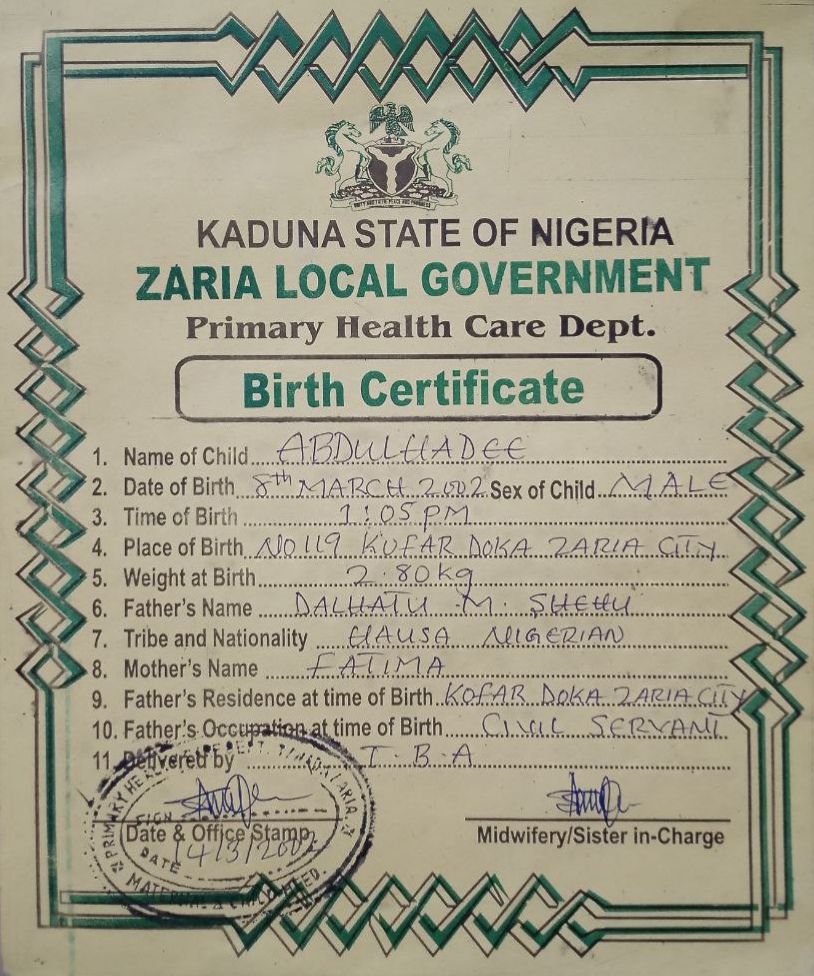 UNITY AND FAITH, PEACE AND PROGRESS
KADUNA STATE OF NIGERIA
ZARIA LOCAL GOVERNMENT
Primary Health Care Dept.
Birth Certificate
1. Name of Child ABDULHADEE
2. Date of Birth 8th MARCH 2002 Sex of Child MALE
3. Time of Birth 1:05PM
4. Place of Birth NO 119 KOFAR DOKA ZARIA CITY
5. Weight at Birth 2.80kg
6. Father's Name DALHATU M. SHEHU
7. Tribe and Nationality HAUSA NIGERIAN
8. Mother's Name FATIMA
9. Father's Residence at time of Birth KOFAR DOKA ZARIA CITY
10. Father's Occupation at time of Birth CIVIL SERVANT
11. Delivered by T.B.A
PRIMARY HEALTH CARE DEPT. ZARIA
SIGN
Date & Office Stamp
Midwifery/Sister in-Charge
DATE 14/3/2002
MATERNAL & CHILD